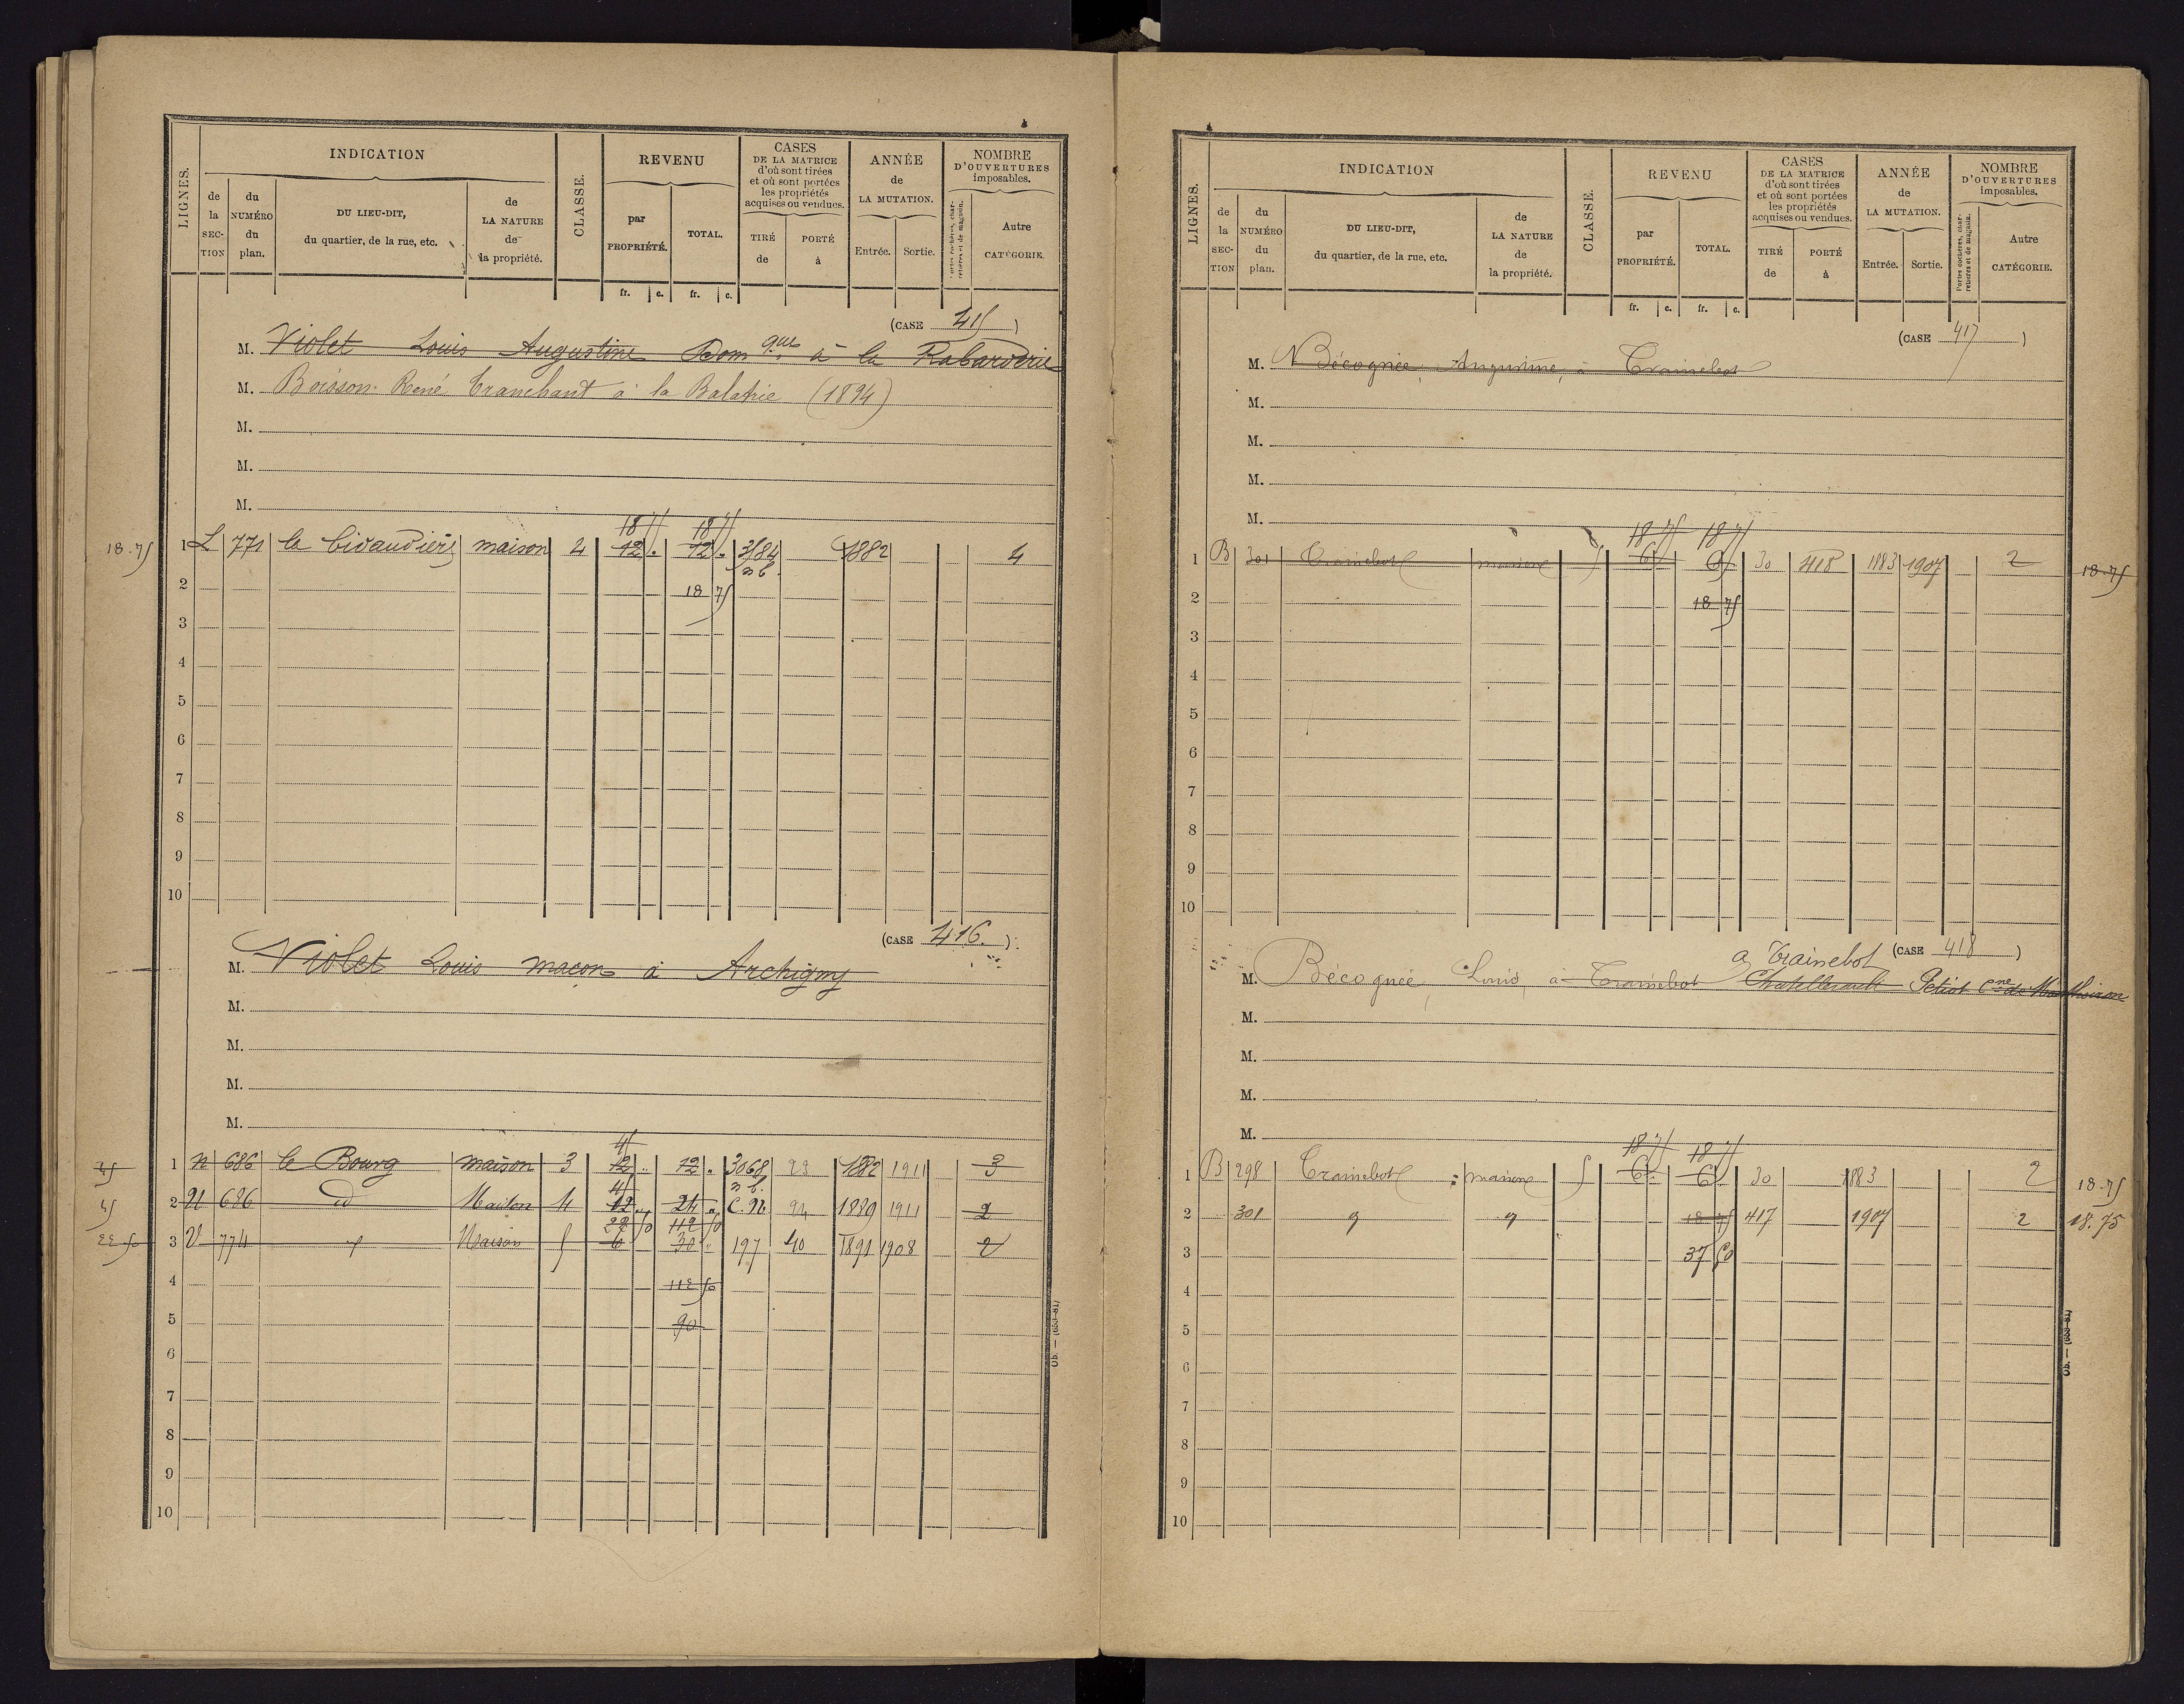 LIGNES.
INDICATION
de la SECTION
du NUMÉRO du plan.
DU LIEU-DIT, du quartier, de la rue, etc.
de LA NATURE de la propriété.
CLASSE.
REVENU
par PROPRIÉTÉ.
TOTAL.
fr. c. fr. c.
CASES DE LA MATRICE d'où sont tirées et où sont portées les propriétés acquises ou vendues.
TIRÉ de
PORTÉ à
ANNÉE de LA MUTATION.
Entrée. Sortie.
NOMBRE D'OUVERTURES imposables.
Portes cochères, charretières et de magasin.
Autre CATÉGORIE.
(CASE 415)
M. Violet Louis Augustine Dom que à la Rabarderie
M. Boisson René Tranchant à la Balatrie (1894)
M.
M.
M.
18 75 18 75
18.75 1 L 771 la bidaudière maison 4 12 . 12 . 3/84 1882 4
n b.
2 18 75
3
4
5
6
7
8
9
10
(CASE 416.)
M. Violet Louis maçon à Archigny
M.
M.
M.
M.
45
45 1 N 686 le Bourg maison 3 12 " 12 " 3068 93 1882 1911 3
45 n b.
45 2 N 686 id Maison 4 12 " 24 " C. N. 94 1889 1911 2
22 50 112 50
22 50 3 N 774 Maison 5 6 30 " 197 410 1891 1908 2
4 112 50
5 90
6
7
8
9
10
Ob. — (653-81)
LIGNES.
INDICATION
de la SECTION
du NUMÉRO du plan.
DU LIEU-DIT, du quartier, de la rue, etc.
de LA NATURE de la propriété.
CLASSE.
REVENU
par PROPRIÉTÉ.
TOTAL.
fr. c. fr. c.
CASES DE LA MATRICE d'où sont tirées et où sont portées les propriétés acquises ou vendues.
TIRÉ de
PORTÉ à
ANNÉE de LA MUTATION.
Entrée. Sortie.
NOMBRE D'OUVERTURES imposables.
Portes cochères, charretières et de magasin.
Autre CATÉGORIE.
(CASE 417)
M. Bécognée, Augustine, à Trainebot
M.
M.
M.
M.
18 75 18 75
1 B 301 Trainebot maison 5 6 6 30 418 1883 1907 2 18.75
2 18 75
3
4
5
6
7
8
9
10
(CASE 418)
à Trainebot
M. Bécognée, Louis, à Trainebot Chatellerault Petiot Cne de Monthoiron
M.
M.
M.
M.
18 75 18 75
1 B 298 Trainebot maison 5 6 6 30 1883 2 18.75
2 301 18 75 417 1907 2 18.75
3 37 50
4
5
6
7
8
9
10
Ob. — (653-81)